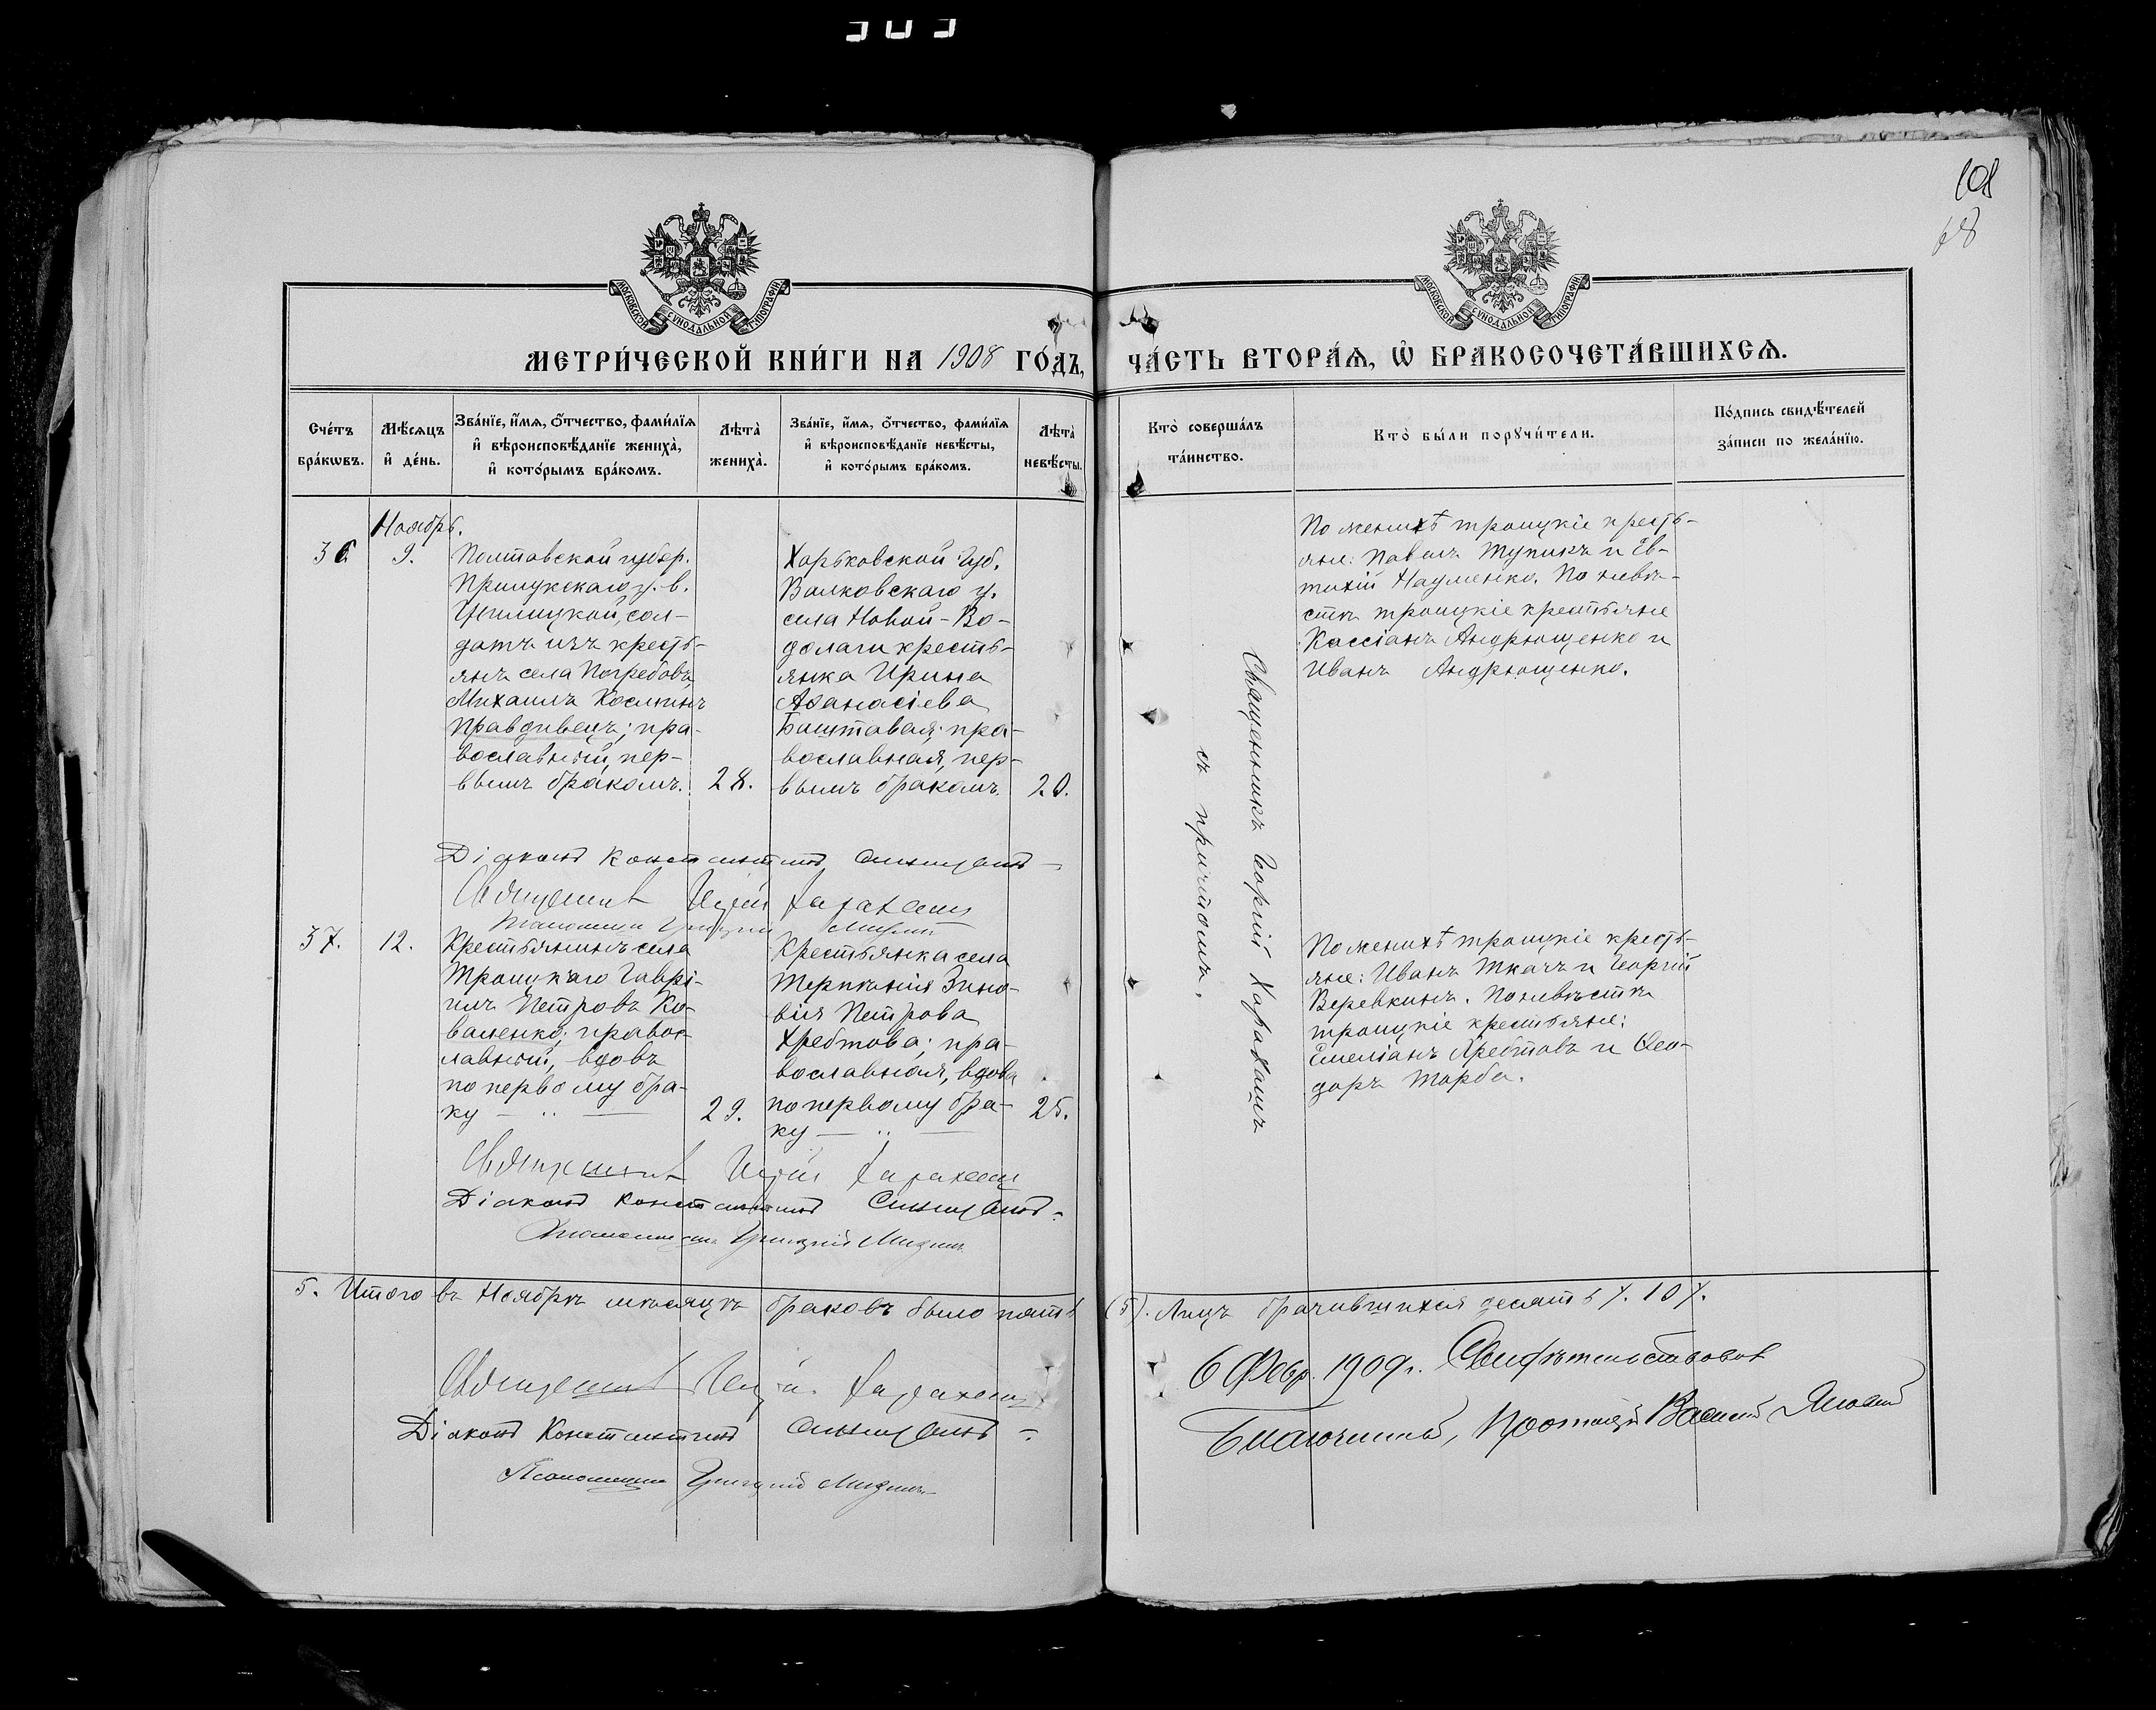 101
68
МОСКОВСКОЙ СѴНОДАЛЬНОЙ ТИПОГРАФІИ
МОСКОВСКОЙ СѴНОДАЛЬНОЙ ТИПОГРАФІИ
МЕТРИ́ЧЕСКОЙ КНИ́ГИ НА 1908 ГО́ДЪ,
ЧА́СТЬ ВТОРА́Ѧ, Ѡ҆ БРАКОСОЧЕТА́ВШИХСѦ.
Сче́тъ
бра́кѡвъ.
Мѣ́сѧцъ
и҆ де́нь.
Зва́нїе, и҆́мѧ, ѻ҆́тчество, фами́лїѧ
и҆ вѣроисповѣ́данїе жениха̀,
и҆ кото́рымъ бра́комъ.
Лѣта̀
жениха̀.
Зва́нїе, и҆́мѧ, ѻ҆́тчество, фами́лїѧ
и҆ вѣроисповѣ́данїе невѣ́сты,
и҆ кото́рымъ бра́комъ.
Лѣта̀
невѣ́сты.
Кто̀ соверша́лъ
та́инство.
Кто̀ бы́ли порꙋчи́тели.
По́дпись свидѣ́телей
за́писи по жела́нїю.
Ноябрь.
36.
9.
Полтавской губер.
Прилукскаго у. в.
сол-
датъ изъ кресть-
янъ села Погребовъ,
Михаилъ Косминъ
Правдивецъ; пра-
вославный, пер-
вымъ бракомъ.
28.
Харьковской губ.
Валковскаго у.
села Новой-Во-
долаги кресть-
янка Ирина
Аѳанасіева
Баштавая; пра-
вославная, пер-
вымъ бракомъ.
20.
Священникъ Георгій Харахашъ
съ причтомъ.
По женихѣ троицкіе кресть-
яне: Павелъ Тупикъ и Ев-
тихій Науменко. По невѣ-
стѣ троицкіе крестьяне
Кассіанъ Андрющенко и
Иванъ Андрющенко.
Діаконъ Константинъ
Священникъ Георгій Харахашъ
Псаломщикъ Григорій
37.
12.
Крестьянинъ села
Троицкаго Гаврі-
илъ Петровъ Ко-
валенко; правос-
лавный, вдовъ
по первому бра-
ку — „ —
29.
Крестьянка села
Терпѣнія Зино-
вія Петрова
Хребтова; пра-
вославная, вдова
по первому бра-
ку — „ —
25.
По женихѣ троицкіе кресть-
яне: Иванъ Ткачъ и Георгій
Веревкинъ. По невѣстѣ
троицкіе крестьяне:
Емеліанъ Хребтовъ и Ѳео-
доръ Торба.
Священникъ Георгій Харахашъ
Діаконъ Константинъ
Псаломщикъ Григорій
5. Итого въ Ноябрѣ мѣсяцѣ браковъ было пять (5). Лицъ брачившихся десять /. 10 /.
Священникъ Георгій Харахашъ
Діаконъ Константинъ
Псаломщикъ Григорій
6 Февр. 1909 г. Свидѣтельствовалъ
Благочинный, Протоіерей Василій